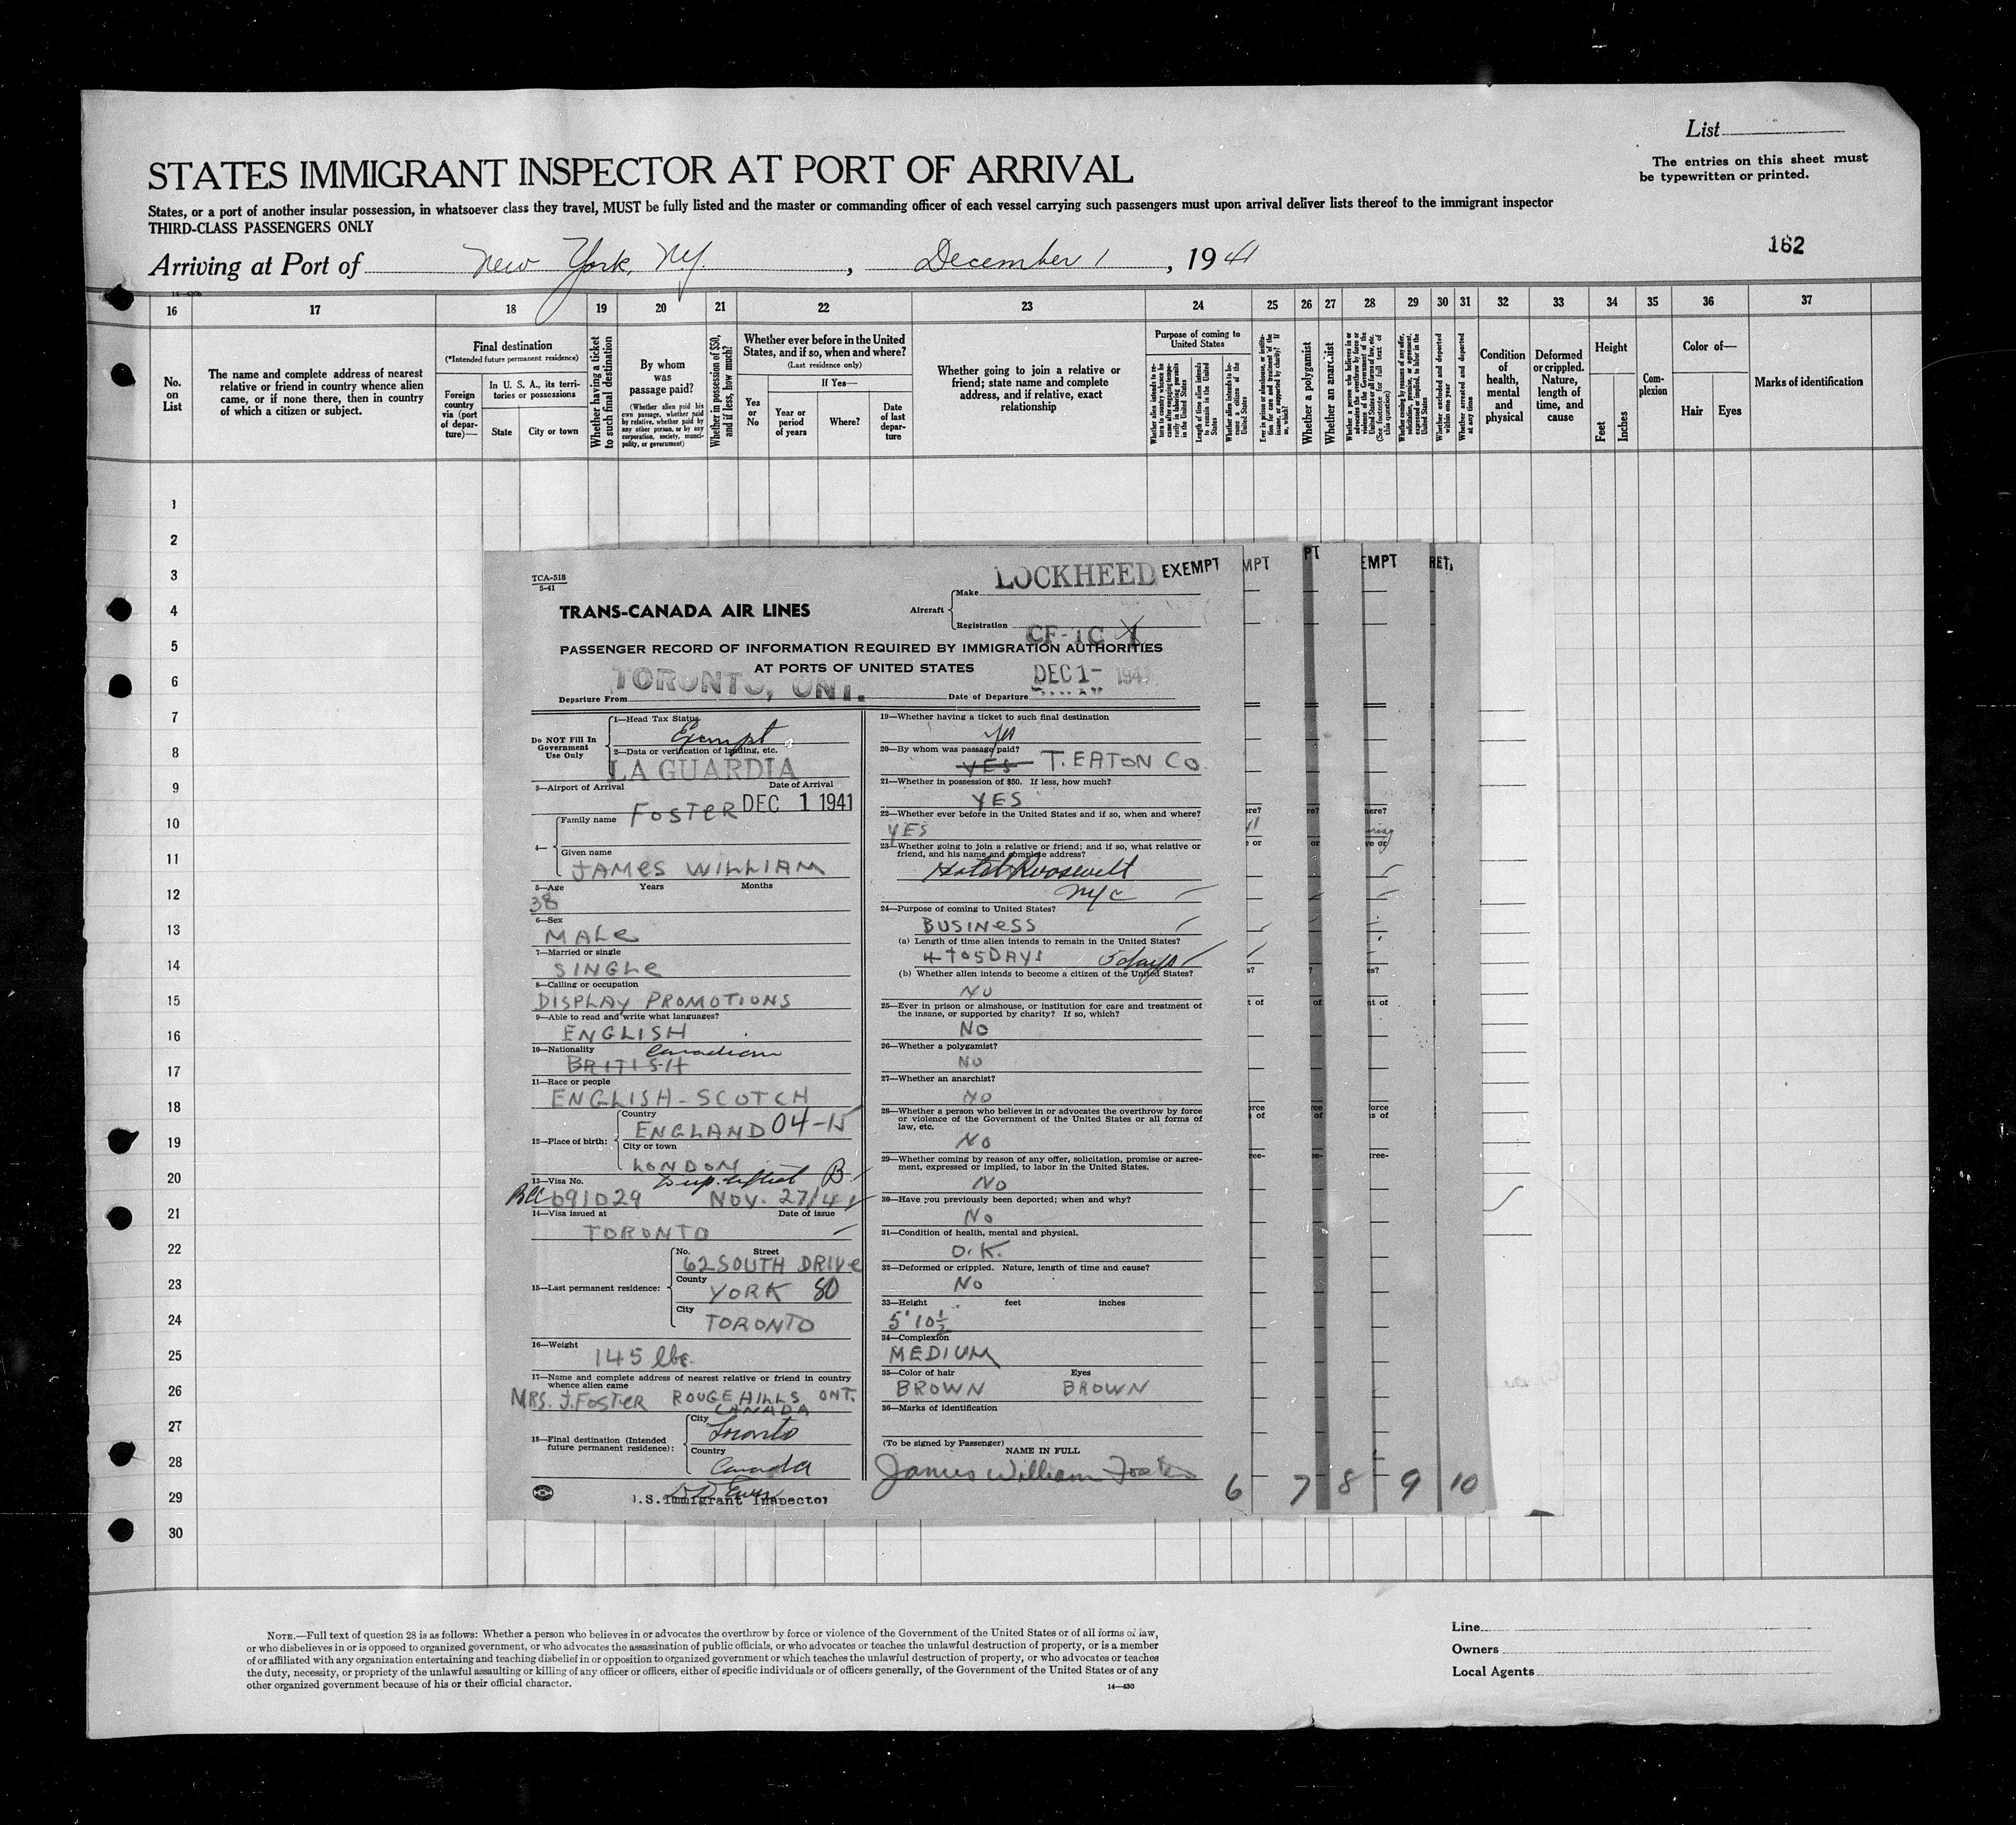 List
The entries on this sheet must
be typewritten or printed.
STATES IMMIGRANT INSPECTOR AT PORT OF ARRIVAL
States, or a port of another insular possession, in whatsoever class they travel, MUST be fully listed and the master or commanding officer of each vessel carrying such passengers must upon arrival deliver lists thereof to the immigrant inspector
THIRD-CLASS PASSENGERS ONLY
162
Arriving at Port of New York, N.Y., December 1, 1941
16 17 18 19 20 21 22 23 24 25 26 27 28 29 30 31 32 33 34 35 36 37
No. on List
The name and complete address of nearest relative or friend in country whence alien came, or if none there, then in country of which a citizen or subject.
Final destination
(*Intended future permanent residence)
Foreign country via (port of departure)—
In U. S. A., its territories or possessions
State
City or town
Whether having a ticket to such final destination
By whom was passage paid?
(Whether alien paid his own passage, whether paid by relative, whether paid by any other person, or by any corporation, society, municipality, or government)
Whether in possession of $50, and if less, how much?
Whether ever before in the United States, and if so, when and where?
(Last residence only)
Yes or No
If Yes—
Year or period of years
Where?
Date of last departure
Whether going to join a relative or friend; state name and complete address, and if relative, exact relationship
Purpose of coming to United States
Length of time alien intends to remain in the United States
Whether alien intends to become a citizen of the United States
Whether a polygamist
Whether an anarchist
Whether excluded and deported within one year
Whether arrested and deported at any time
Condition of health, mental and physical
Deformed or crippled. Nature, length of time, and cause
Height
Feet
Inches
Complexion
Color of—
Hair
Eyes
Marks of identification
1
2
3
4
5
6
7
8
9
10
11
12
13
14
15
16
17
18
19
20
21
22
23
24
25
26
27
28
29
30
TCA-518
5-41
TRANS-CANADA AIR LINES
Aircraft
Make LOCKHEED
EXEMPT
Registration CF-TC
PASSENGER RECORD OF INFORMATION REQUIRED BY IMMIGRATION AUTHORITIES
AT PORTS OF UNITED STATES
Departure From TORONTO, ONT.
Date of Departure DEC 1- 1941
Do NOT Fill In
Government
Use Only
1—Head Tax Status
Exempt
2—Data or verification of landing, etc.
LA GUARDIA
3—Airport of Arrival Date of Arrival
DEC 1 1941
4—
Family name FOSTER
Given name
JAMES WILLIAM
5—Age Years Months
38
6—Sex
MALE
7—Married or single
SINGLE
8—Calling or occupation
DISPLAY PROMOTIONS
9—Able to read and write what languages?
ENGLISH
10—Nationality Canadian
BRITISH
11—Race or people
ENGLISH-SCOTCH
12—Place of birth:
Country
ENGLAND 04-15
City or town
LONDON
13—Visa No. B
BCC 691029 NOV. 27/41
14—Visa issued at Date of issue
TORONTO
15—Last permanent residence:
No. Street
62 SOUTH DRIVE
County
YORK 80
City
TORONTO
16—Weight
145 lbs.
17—Name and complete address of nearest relative or friend in country
whence alien came
MRS. J. FOSTER ROUGE HILLS ONT.
CANADA
18—Final destination (Intended
future permanent residence):
City
Toronto
Country
Canada
U.S. Immigrant Inspector
19—Whether having a ticket to such final destination
Yes
20—By whom was passage paid?
YES T. EATON CO.
21—Whether in possession of $50. If less, how much?
YES
22—Whether ever before in the United States and if so, when and where?
YES
23—Whether going to join a relative or friend; and if so, what relative or
friend, and his name and complete address?
Hotel Roosevelt
NYC
24—Purpose of coming to United States?
BUSINESS
(a) Length of time alien intends to remain in the United States?
4 TO 5 DAYS 5 days
(b) Whether alien intends to become a citizen of the United States?
NO
25—Ever in prison or almshouse, or institution for care and treatment of
the insane, or supported by charity? If so, which?
NO
26—Whether a polygamist?
NO
27—Whether an anarchist?
NO
28—Whether a person who believes in or advocates the overthrow by force
or violence of the Government of the United States or all forms of
law, etc.
NO
29—Whether coming by reason of any offer, solicitation, promise or agree-
ment, expressed or implied, to labor in the United States.
NO
30—Have you previously been deported; when and why?
NO
31—Condition of health, mental and physical.
O.K.
32—Deformed or crippled. Nature, length of time and cause?
NO
33—Height feet inches
5' 10½
34—Complexion
MEDIUM
35—Color of hair Eyes
BROWN BROWN
36—Marks of identification
(To be signed by Passenger)
NAME IN FULL
James William Foster
6 7 8 9 10
NOTE.—Full text of question 28 is as follows: Whether a person who believes in or advocates the overthrow by force or violence of the Government of the United States or of all forms of law,
or who disbelieves in or is opposed to organized government, or who advocates the assassination of public officials, or who advocates or teaches the unlawful destruction of property, or is a member
of or affiliated with any organization entertaining and teaching disbelief in or opposition to organized government or which teaches the unlawful destruction of property, or who advocates or teaches
the duty, necessity, or propriety of the unlawful assaulting or killing of any officer or officers, either of specific individuals or of officers generally, of the Government of the United States or of any
other organized government because of his or their official character.
14—430
Line
Owners
Local Agents